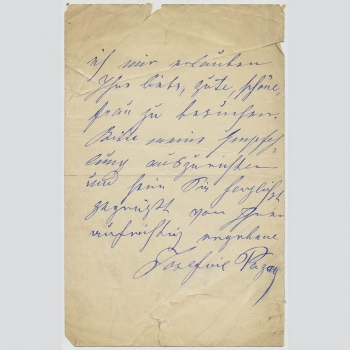 ich mir erlauben
Ihre liebe, gute, schöne
Frau zu besuchen.
Bitte meine Empfeh-
lung auszurichten
und sein Sie herzlichst
gegrüßt von Ihrer
aufrichtig ergebene
Josefine